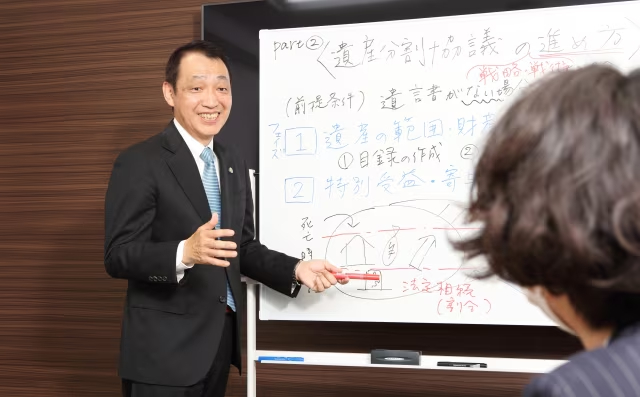 part② 〈遺産分割協議の進め方〉
戦略・戦術
(前提条件) 遺言書がない場合
1 遺産の範囲・財産
①目録の作成 ②
2 特別受益・寄与
死亡時
法定相続
(割合)